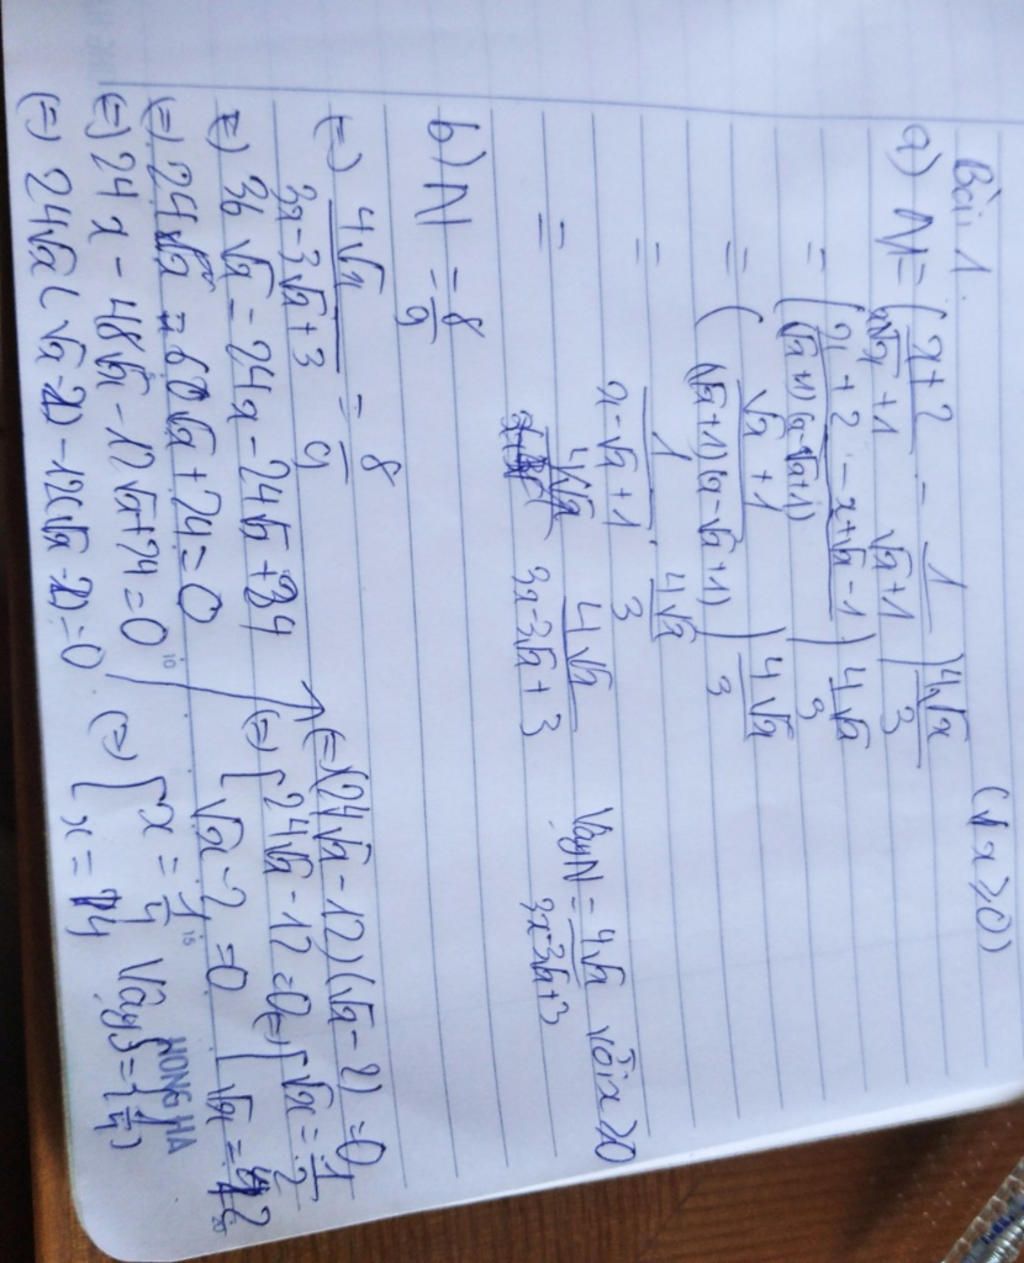 Bài 1. (∀x ≥ 0)
a) N = ( (x+2)/(x√x+1) - 1/(√x+1) ) 4√x/3
= ( (x+2-x+√x-1)/((√x+1)(x-√x+1)) ) 4√x/3
= ( (√x+1)/((√x+1)(x-√x+1)) ) 4√x/3
= 1/(x-√x+1) . 4√x/3
= 4√x/(3x-3√x+3) Vậy N = 4√x/(3x-3√x+3) với x ≥ 0
b) N = 8/9
(=) 4√x/(3x-3√x+3) = 8/9
(=) 36√x = 24x - 24√x + 24
(=) 24x - 60√x + 24 = 0
(=) 24x - 48√x - 12√x + 24 = 0
(=) 24√x(√x-2) - 12(√x-2) = 0
(=) (24√x - 12)(√x - 2) = 0
(=) [ 24√x - 12 = 0 (=) [ √x = 1/2
√x - 2 = 0 √x = 2
(=) [ x = 1/4
x = 4
HONG HA
10
15
20